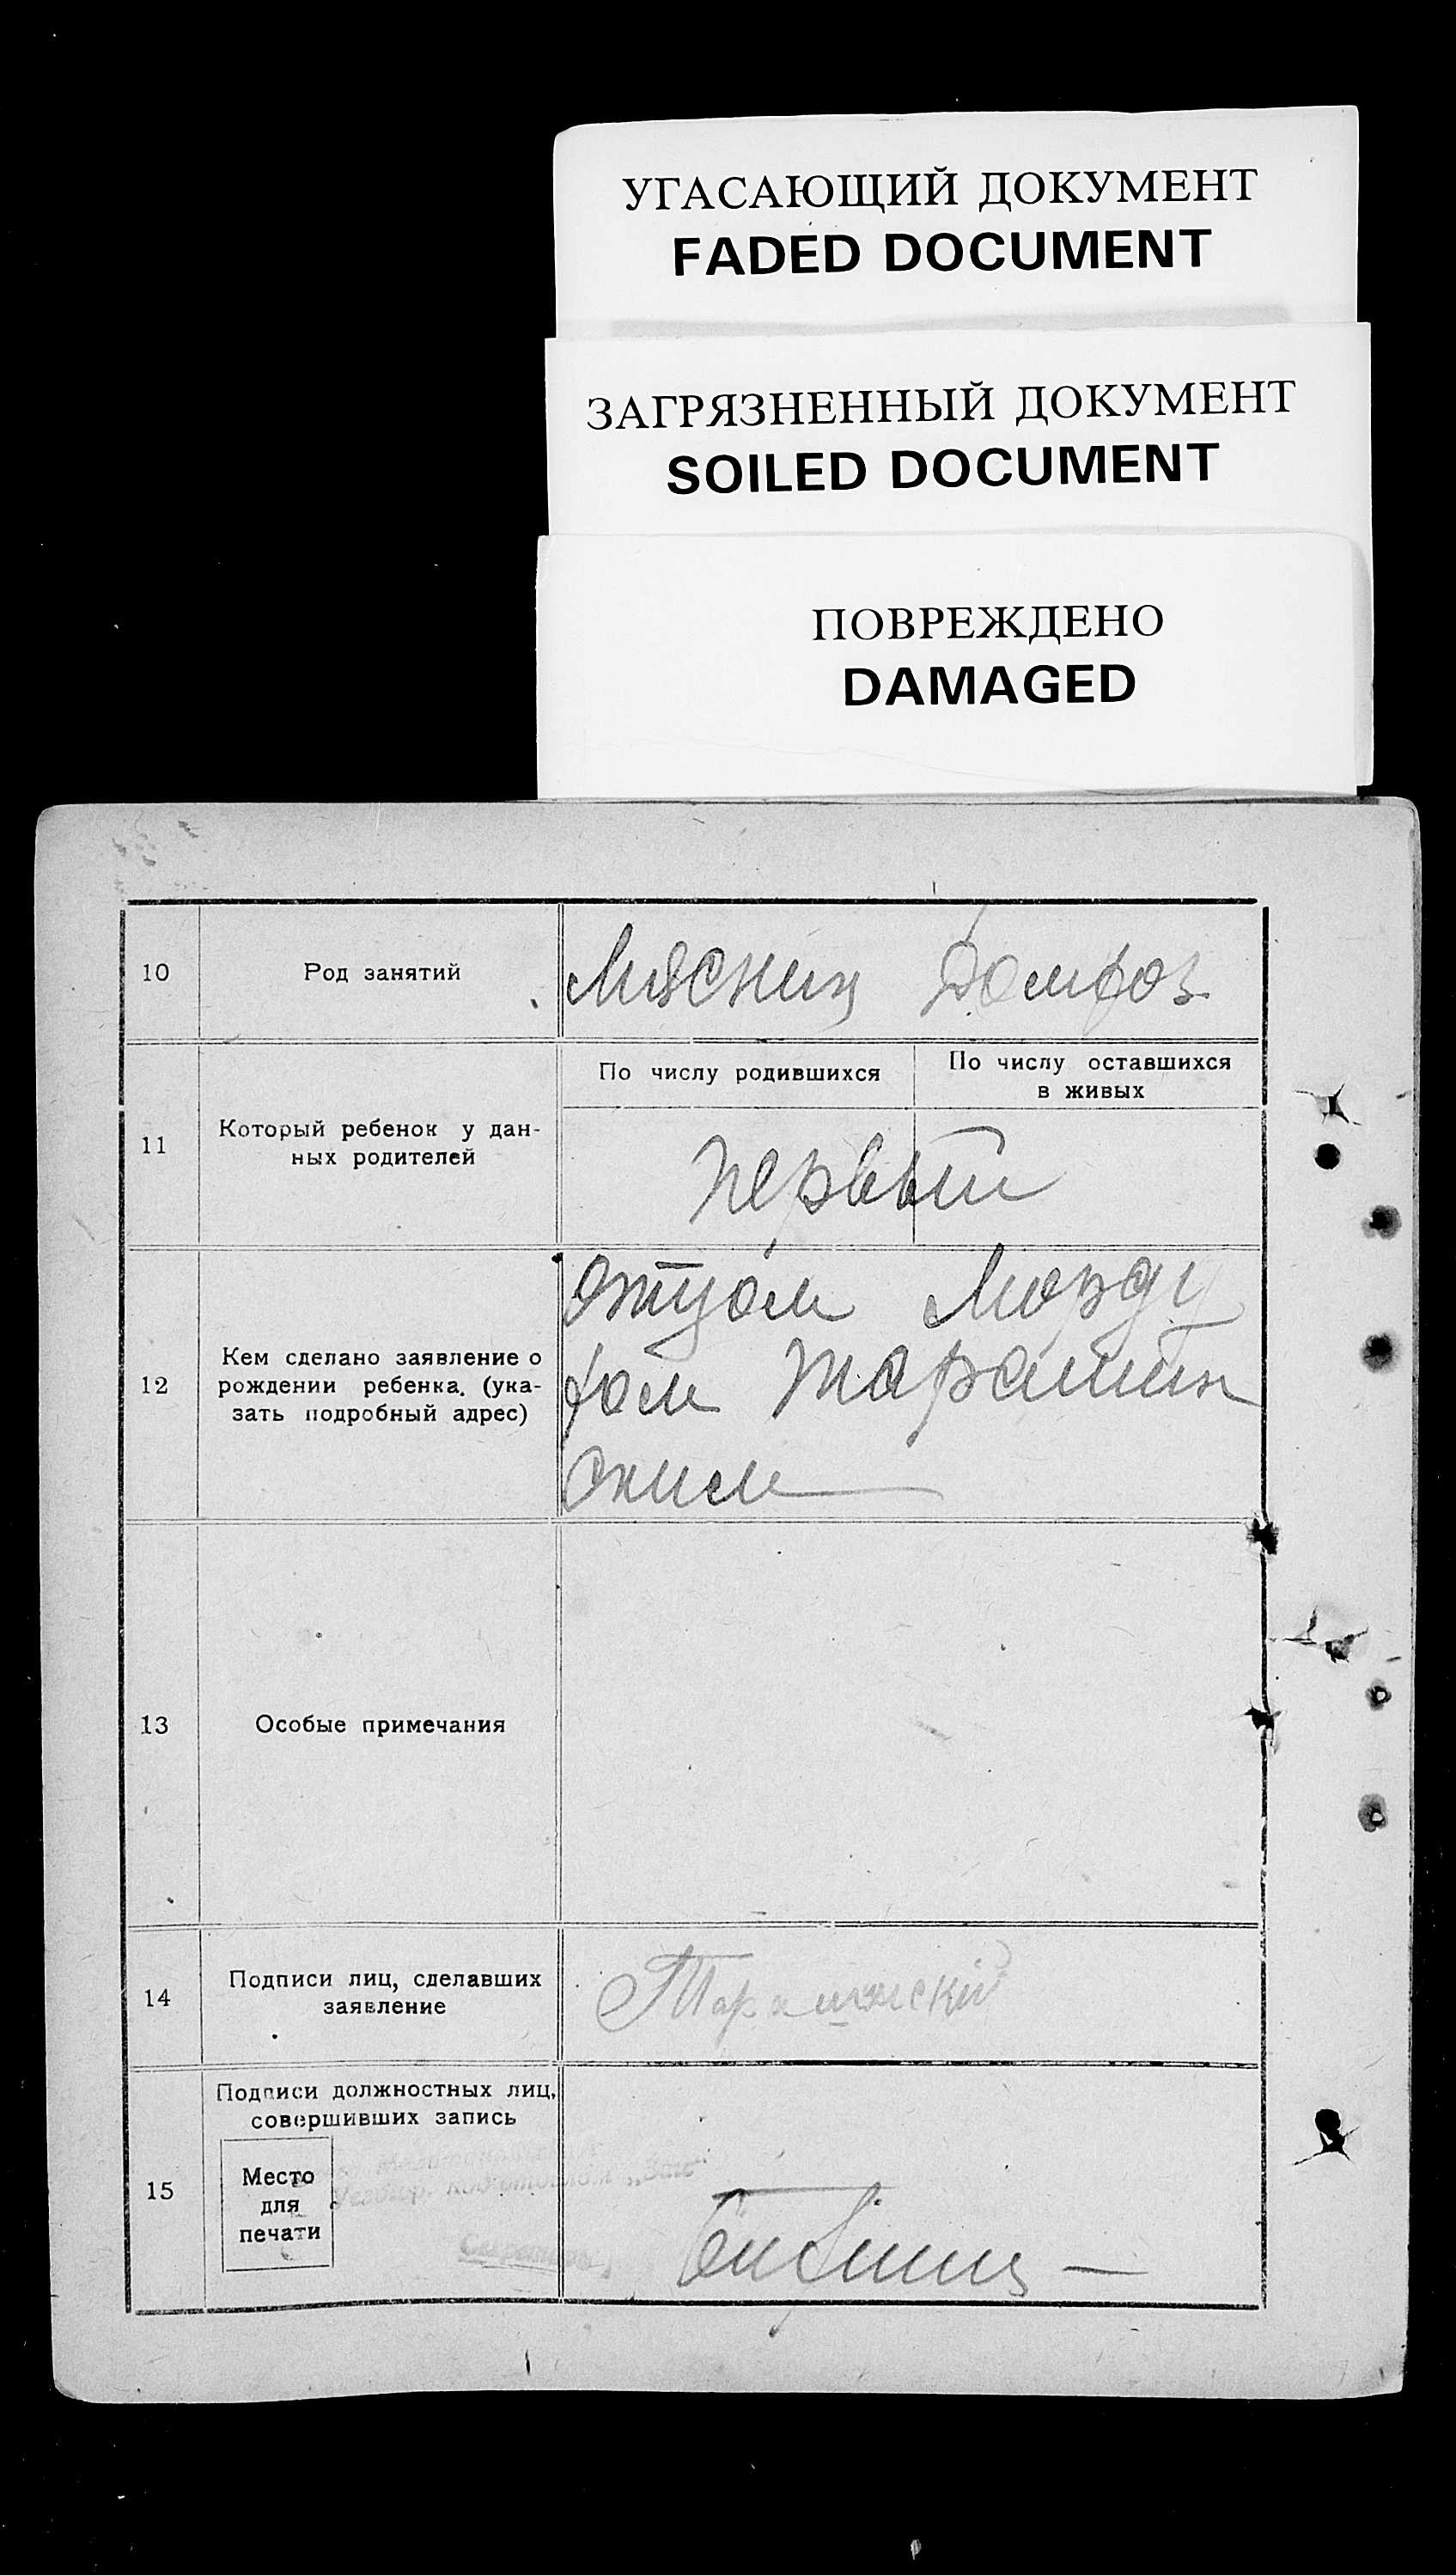 УГАСАЮЩИЙ ДОКУМЕНТ
FADED DOCUMENT
ЗАГРЯЗНЕННЫЙ ДОКУМЕНТ
SOILED DOCUMENT
ПОВРЕЖДЕНО
DAMAGED
10 Род занятий Мясник Домхоз
По числу родившихся
По числу оставшихся
в живых
11 Который ребенок у дан-
ных родителей
первый
12 Кем сделано заявление о
рождении ребенка. (ука-
зать подробный адрес)
Отцом Морду
хом Таращан
ским
13 Особые примечания
14 Подписи лиц, сделавших
заявление
Таращанский
15 Подписи должностных лиц,
совершивших запись
Место
для
печати